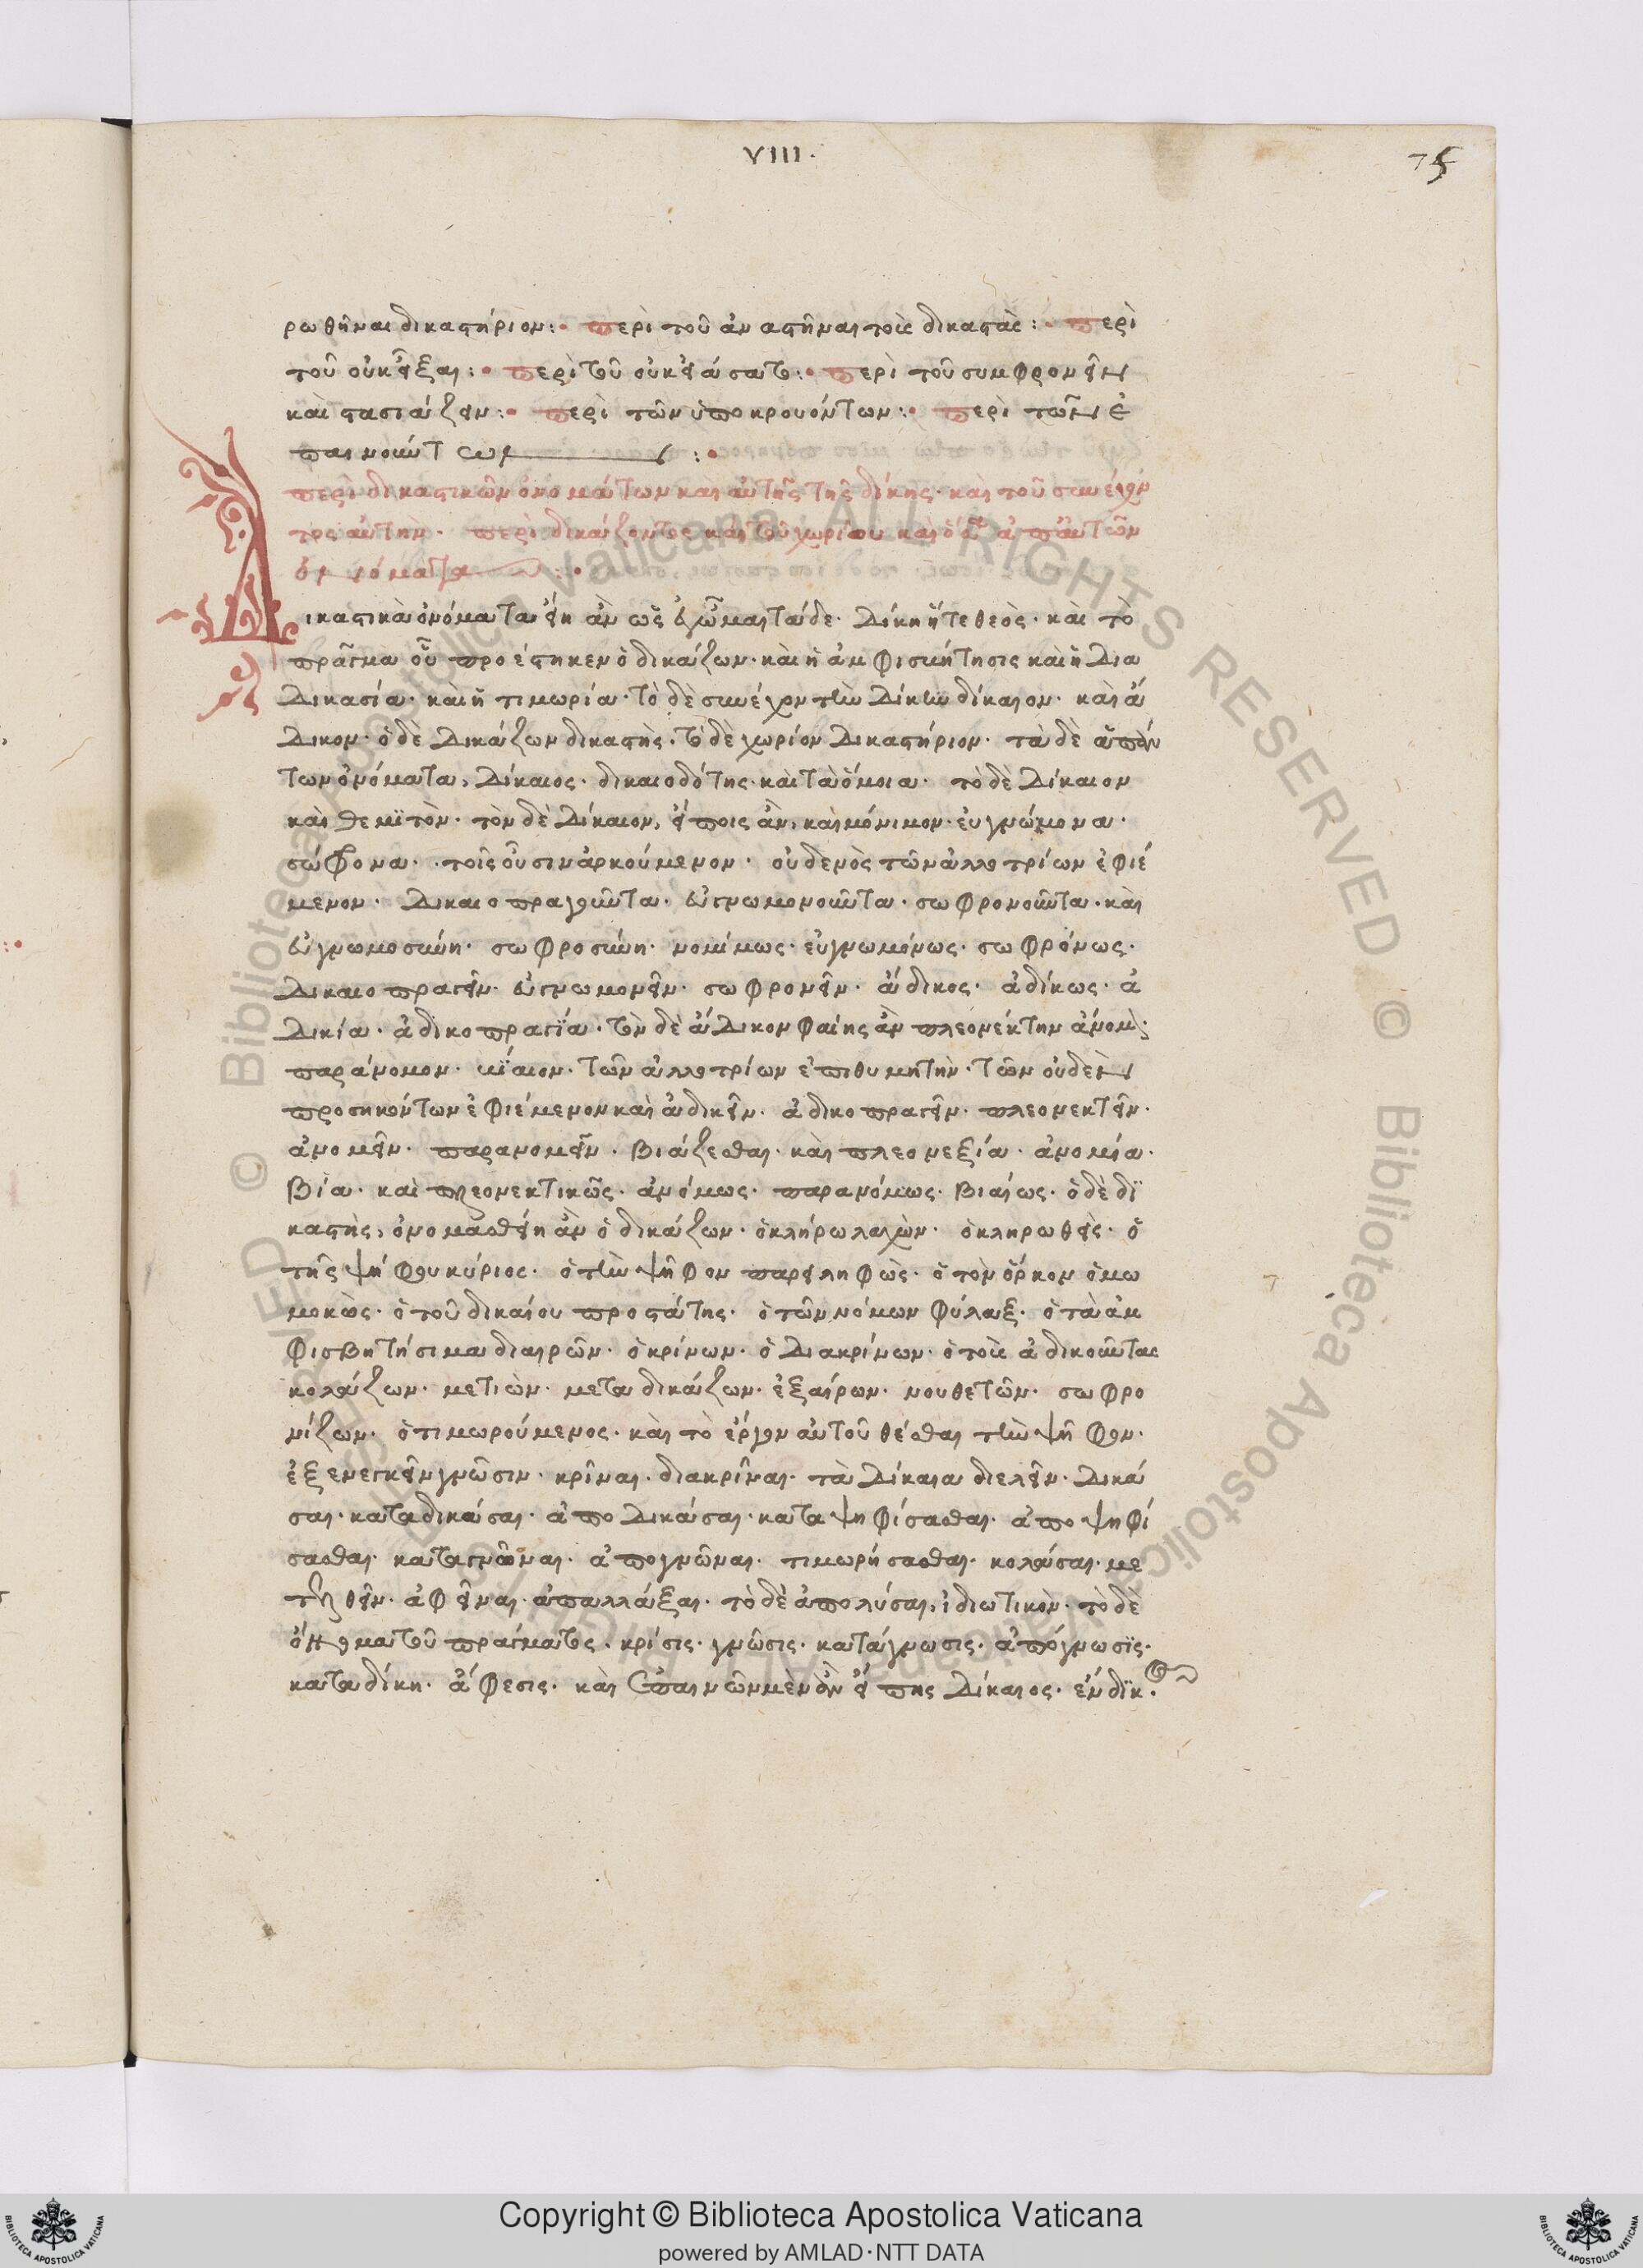 VIII.
75
ρωθῆναι δικαστήριον: περὶ τοῦ ἀναστῆναι τοὺς δικαστὰς: περὶ
τοῦ οὐκ εἶξαι: περὶ τοῦ συμφρονεῖν
καὶ στασιάζειν: περὶ τῶν ὑποκρουόντων: περὶ τῶν ἐ
παινούντων:
περὶ δικαστικῶν ὀνομάτων καὶ αὐτῆς τῆς δίκης. καὶ τοῦ συνέχον
τος αὐτὴν. περὶ δικάζοντος καὶ τοῦ χωρίου καὶ
ὀνόματα:
Δικαστικὰ ὀνόματα εἴη ἂν ὡς τάδε. Δίκη ἥτε θεὸς. καὶ τὸ
πρᾶγμα οὗ προέστηκεν ὁ δικάζων. καὶ ἡ ἀμφισβήτησις καὶ ἡ Δια
Δικασία. καὶ ἡ τιμωρία. τὸ δὲ συνέχον τὴν Δίκην δίκαιον. καὶ ἄ
Δικον. ὁ δὲ Δικάζων δικαστὴς. τὸ δὲ χωρίον Δικαστήριον. τὰ δὲ ἀπὸ
των ὀνόματα, Δίκαιος. δικαιοδότης. καὶ τὰ ὅμοια. τὸ δὲ Δίκαιον
καὶ θεμϊτὸν. τὸν δὲ Δίκαιον, εἴποις ἂν, καὶ μόνιμον. εὐγνώμονα.
σώφρονα. τοῖς οὖσιν ἀρκούμενον. οὐδενὸς τῶν ἀλλοτρίων ἐφιέ
μενον. Δικαιοπραγοῦντα. εὐγνωμονοῦντα. σωφρονοῦντα. καὶ
εὐγνωμοσύνη. σωφροσύνη. νομίμως. εὐγνωμόνως. σωφρόνως.
Δικαιοπραγεῖν. εὐγνωμονεῖν. σωφρονεῖν. ἄδικος. ἀδίκως. ἀ
Δικία. ἀδικοπραγία. τὸν δὲ ἄΔικον φαίης ἂν πλεονέκτην ἄνομ.
παράνομον. βίαιον. τῶν ἀλλοτρίων ἐπιθυμητὴν. τῶν οὐδὲν
προσηκόντων ἐφιέμενον καὶ ἀδικεῖν. ἀδικοπραγεῖν. πλεονεκτεῖν.
ἀνομεῖν. παρανομεῖν. βιάζεσθαι. καὶ πλεονεξία. ἀνομία.
βία. καὶ πλεονεκτικῶς. ἀνόμως. παρανόμως. βιαίως. ὁ δὲ δϊ
καστὴς, ὀνομασθείη ἂν ὁ δικάζων. ὁ κλήρω λαχὼν. ὁ κληρωθεὶς. ὁ
τῆς ψήφου κύριος. ὁ τὴν ψῆφον παρειληφὼς. ὁ τὸν ὅρκον ὀμω
μοκὼς. ὁ τοῦ δικαίου προστάτης. ὁ τῶν νόμων φύλαξ. ὁ τὰ ἀμ
φισβητήσιμα διαιρῶν. ὁ κρίνων. ὁ Διακρίνων. ὁ τοὺς ἀδικοῦντας
κολάζων. μετιὼν. μεταδικάζων. ἐξαίρων. νουθετῶν. σωφρο
νίζων. ὁ τιμωρούμενος. καὶ τὸ ἔργον αὐτοῦ θέσθαι τὴν ψῆφον.
ἐξενεγκεῖν γνῶσιν. κρῖναι. διακρῖναι. τὰ Δίκαια διελεῖν. Δικά
σαι. καταδικάσαι. ἀποΔικάσαι. καταψηφίσασθαι. ἀποψηφί
σασθαι. καταγνῶναι. ἀπογνῶναι. τιμωρήσασθαι. κολάσαι. με
τελθεῖν. ἀφεῖναι. ἀπαλλάξαι. τὸ δὲ ἀπολύσαι, ἰδιωτικὸν. τὸ δὲ
ὄνομα τοῦ πράγματος. κρίσις. γνῶσις. κατάγνωσις. ἀπόγνωσϊς.
καταδίκη. ἄφεσις. καὶ ἐπαινῶν μὲν ἂν εἴπης Δίκαιος. ἔνδϊκ.